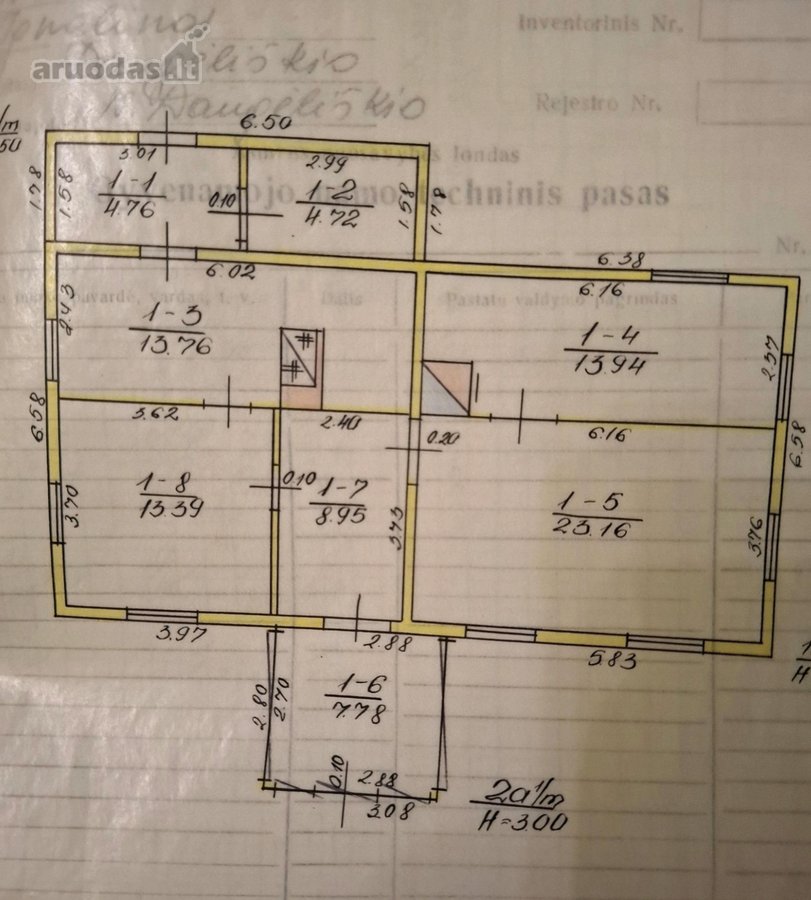 Inventorinis Nr.
aruodas.lt
Rejestro Nr.
6.50
3.01
2.99
1.78
1.58
1-1
4.76
0.10
1-2
4.72
1.58
1.78
techninis pasas
Nr.
6.02
6.38
6.16
2.43
1-3
13.76
1-4
13.94
2.37
3.62
2.40
0.20
6.16
6.58
6.58
3.70
1-8
13.39
0.10
1-7
8.95
3.73
1-5
23.16
3.76
3.97
2.88
5.83
1-6
7.78
2.80
2.70
0.10
2.88
3.08
2a1/m
H=3.00